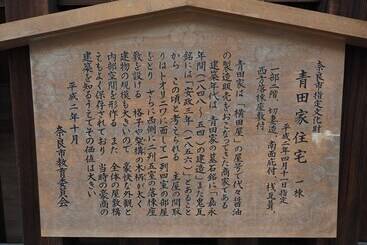 奈良市指定文化財
青田家住宅　一棟
平成二年四月十一日指定
一部二階、切妻造、南面庇付、桟瓦葺、
西方落棟座敷付
青田家は「横田屋」の屋号で代々醤油
の製造販売をおこなってきた商家である
建築年代は、青田家の墓石銘に「嘉永
年間(一八四八〜五四)の建造」また鬼瓦
銘には「安政三年(一八五六)」とあること
から、この頃と考えられる 主屋の間取
りはトオリニワに面して一列四室の部屋
をとり さらに西側に二列五室の落棟座
敷を設ける 格子や架構の木柄が太く、
建物の規模も大きいので、豪快な外観と
内部空間を形作る 全体の屋敷構
こもよく保存されており 当時の豪商の
建築を知るうえでその価値は大きい
平成二年十月
奈良市教育委員会